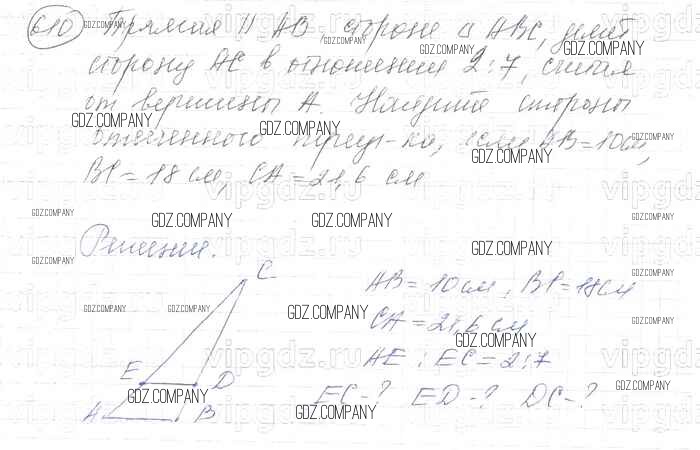 610 Прямая || AB, стороне △ ABC, делит
сторону AC в отношении 2:7, считая
от вершины A. Найдите стороны
отсеченного треуг-ка, если AB=10см,
BC=18 см, CA=21,6 см
Решение.
C
AB=10см, BC=18см
CA=21,6 см
AE : EC=2:7
E D
EC-? ED-? DC-?
A B
GDZ.COMPANY
vipgdz.ru